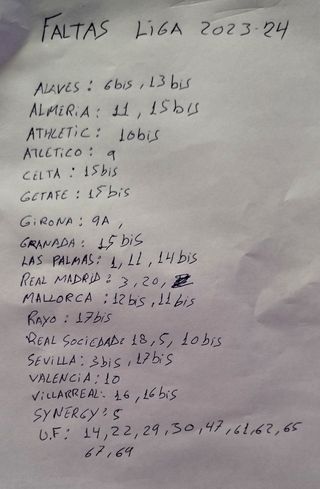 FALTAS LIGA 2023-24
ALAVES: 6bis, 13bis
ALMERIA: 11, 15bis
ATHLETIC: 10bis
ATLETICO: 9
CELTA: 15bis
GETAFE: 15bis
GIRONA: 9A,
GRANADA: 15bis
LAS PALMAS: 1, 11, 14bis
REAL MADRID: 3, 20,
MALLORCA: 12bis, 11bis
RAYO: 17bis
REAL SOCIEDAD: 18, 5, 10bis
SEVILLA: 3bis, 17bis
VALENCIA: 10
VILLARREAL: 16, 16bis
SYNERGY: 5
U.F: 14, 22, 29, 30, 47, 61, 62, 65
67, 69